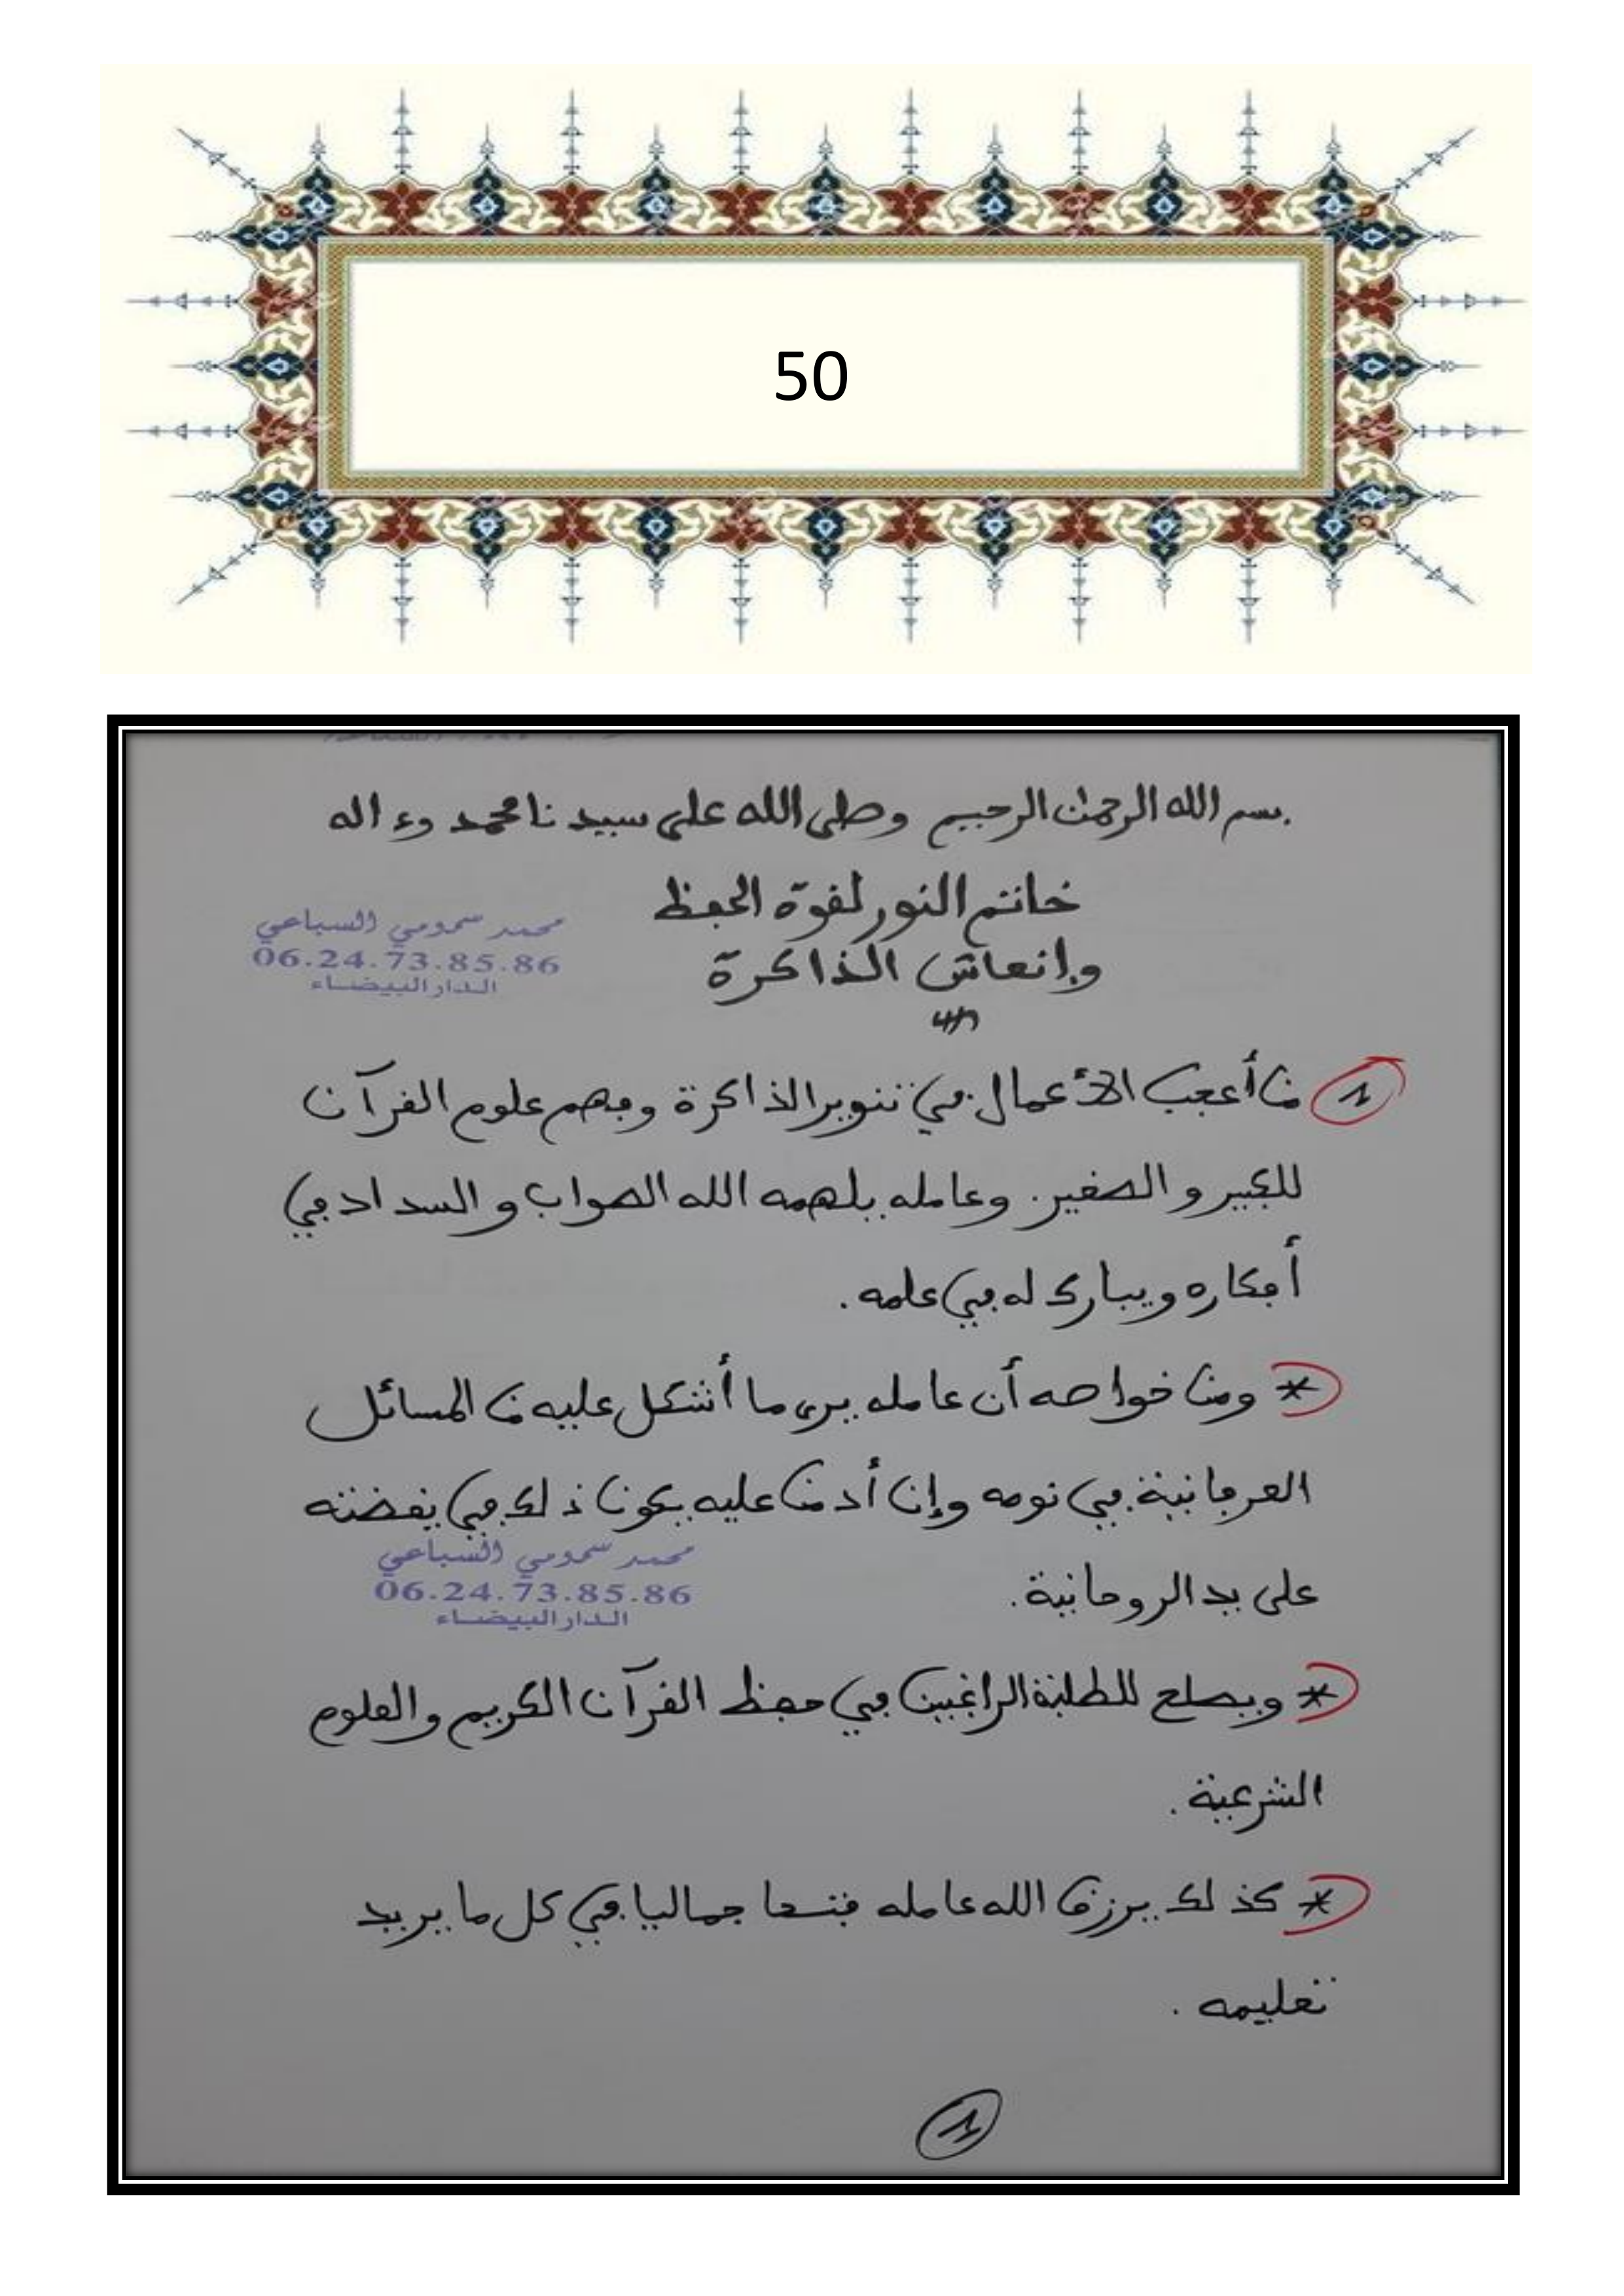 50
بسم الله الرحمن الرحيم وصلى الله على سيدنا محمد وءاله
خاتم النور لقوة الحفظ
وإنعاش الذاكرة
محمد سمومي السباعي
06.24.73.85.86
الدار البيضاء
1 من أعجب الأعمال في تنوير الذاكرة وفهم علوم القرآن
للكبير والصغير. وعامله يلهمه الله الصواب والسداد في
أفكاره ويبارك له في علمه.
* ومن خواصه أن عامله يرى ما أشكل عليه من المسائل
العرفانية في نومه وإن أدمن عليه يكون ذلك في يقضته
محمد سمومي السباعي
06.24.73.85.86
الدار البيضاء
على يد الروحانية.
* ويصلح للطلبة الراغبين في حفظ القرآن الكريم والعلوم
الشرعية.
* كذلك يرزق الله عامله فتحا جماليا في كل ما يريد
تعليمه.
1